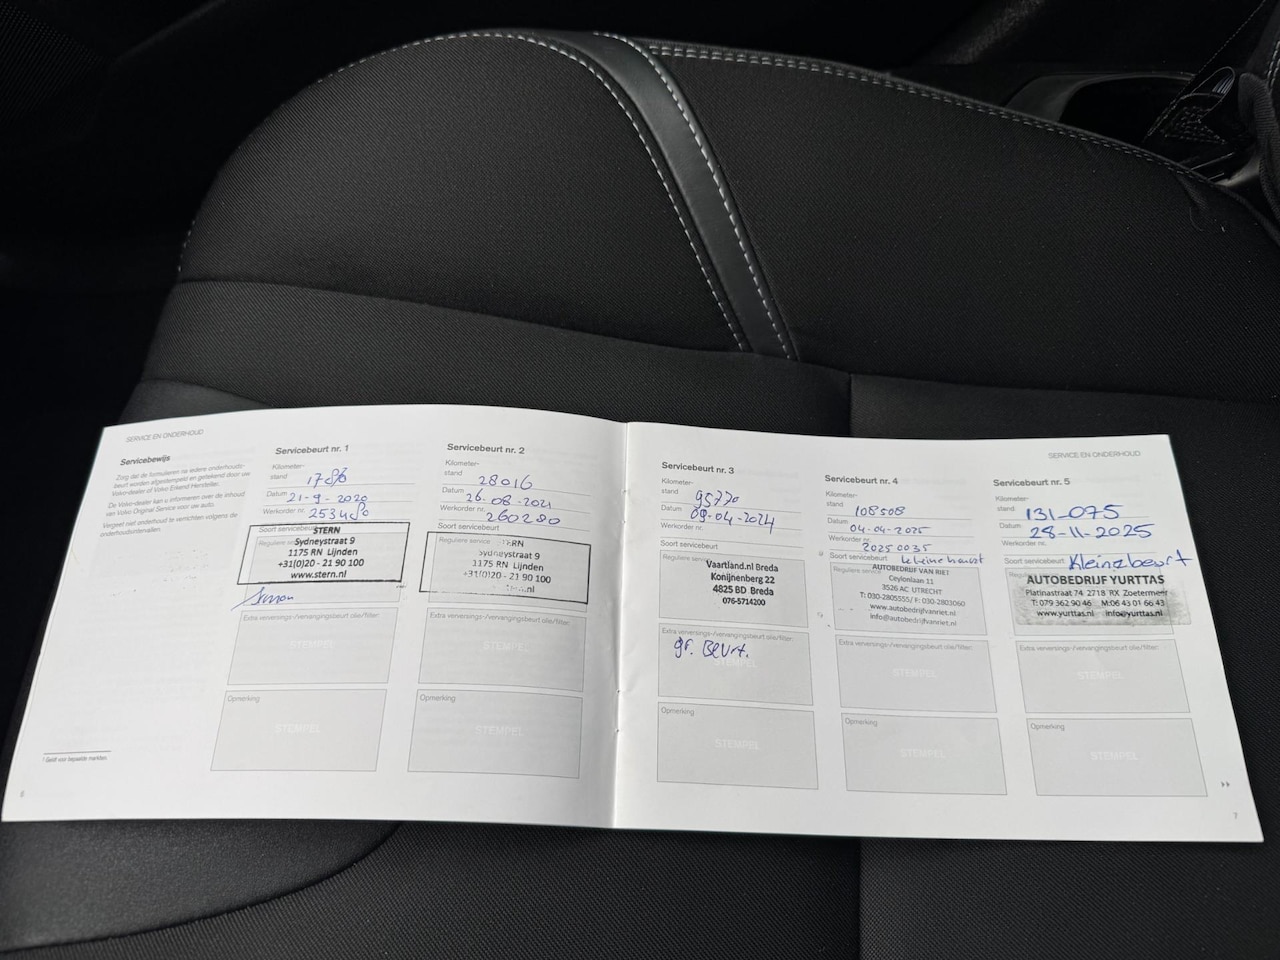 SERVICE EN ONDERHOUD
Servicebewijs
Zorg dat de formulieren na iedere onderhouds-
beurt worden afgestempeld en getekend door uw
Volvo-dealer of Volvo Erkend Hersteller.
De Volvo-dealer kan u informeren over de inhoud
van Volvo Original Service voor uw auto.
Vergeet niet onderhoud te verrichten volgens de
onderhoudsintervallen.
¹ Geldt voor bepaalde markten.
6
Servicebeurt nr. 1
Kilometer-
stand
Datum 21-9-2020
Werkorder nr. 253480
Soort servicebeurt
Reguliere
STERN
Sydneystraat 9
1175 RN Lijnden
+31(0)20 - 21 90 100
www.stern.nl
Extra verversings-/vervangingsbeurt olie/filter:
STEMPEL
Opmerking
STEMPEL
Servicebeurt nr. 2
Kilometer-
stand 28016
Datum 26-08-2021
Werkorder nr. 260280
Soort servicebeurt
Reguliere service
Sydneystraat 9
1175 RN Lijnden
+31(0)20 - 21 90 100
Extra verversings-/vervangingsbeurt olie/filter:
STEMPEL
Opmerking
STEMPEL
SERVICE EN ONDERHOUD
Servicebeurt nr. 3
Kilometer-
stand 95770
Datum 09-04-2024
Werkorder nr.
Soort servicebeurt
Reguliere
Vaartland.nl Breda
Konijnenberg 22
4825 BD Breda
076-5714200
Extra verversings-/vervangingsbeurt olie/filter:
gr. Beurt.
STEMPEL
Opmerking
STEMPEL
Servicebeurt nr. 4
Kilometer-
stand 108508
Datum 04-04-2025
Werkorder nr. 20250035
Soort servicebeurt
Reguliere
AUTOBEDRIJF VAN RIET
Ceylonlaan 11
3526 AC UTRECHT
T: 030-2805555/ F: 030-2803060
www.autobedrijfvanriet.nl
info@autobedrijfvanriet.nl
Extra verversings-/vervangingsbeurt olie/filter:
STEMPEL
Opmerking
STEMPEL
Servicebeurt nr. 5
Kilometer-
stand 131-075
Datum 28-11-2025
Werkorder nr.
Soort servicebeurt Kleinebeurt
AUTOBEDRIJF YURTTAS
Platinastraat 74 2718 RX Zoetermeer
T: 079 362 90 46 M:06 43 01 66 43
www.yurttas.nl info@yurttas.nl
Extra verversings-/vervangingsbeurt olie/filter:
STEMPEL
Opmerking
STEMPEL
7